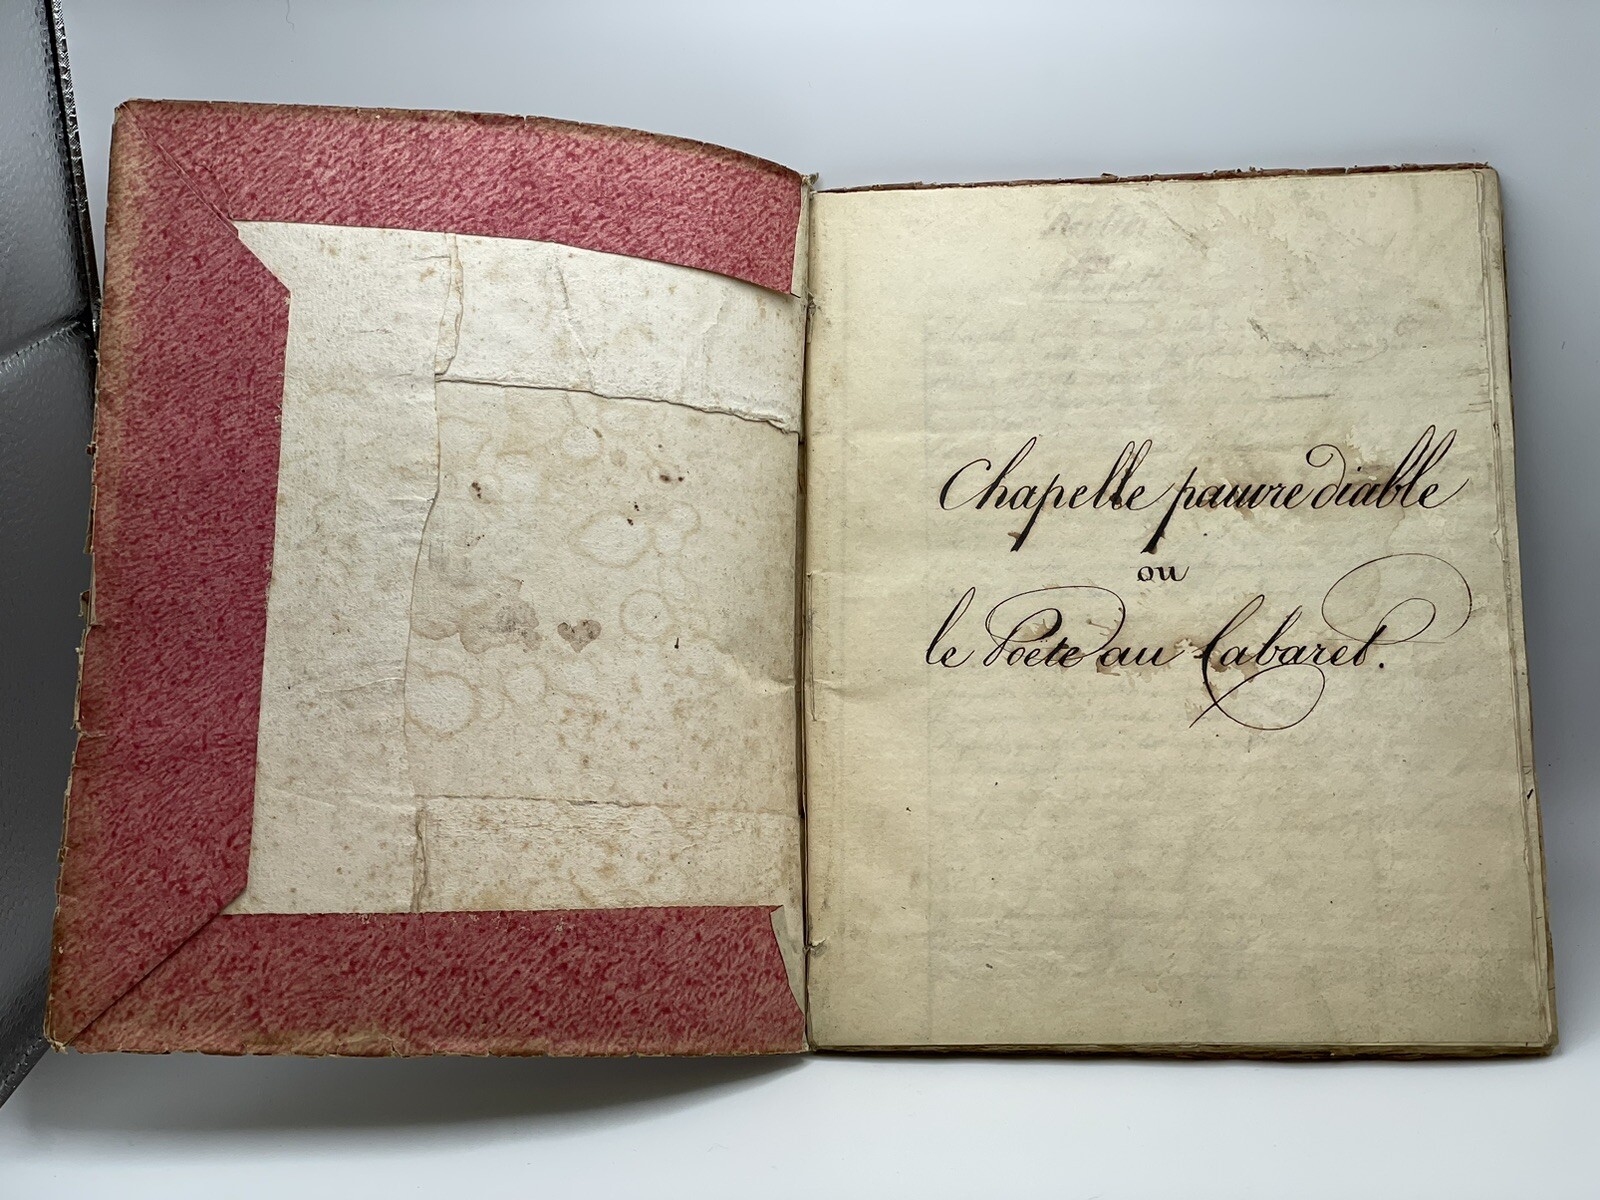 Chapelle pauvre diable
ou
le Poëte au Cabaret.